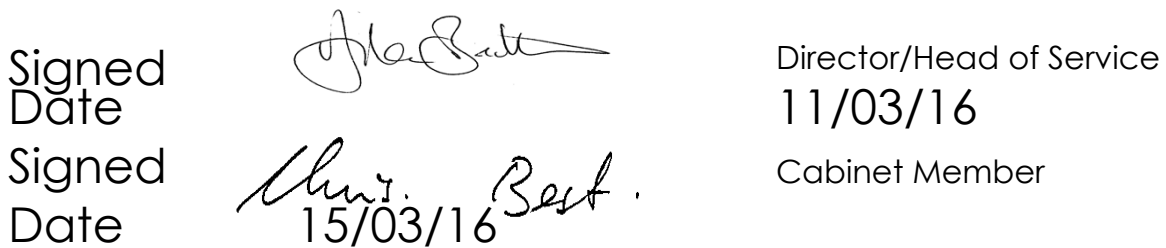 Signed Director/Head of Service
Date 11/03/16
Signed Chris. Best. Cabinet Member
Date 15/03/16